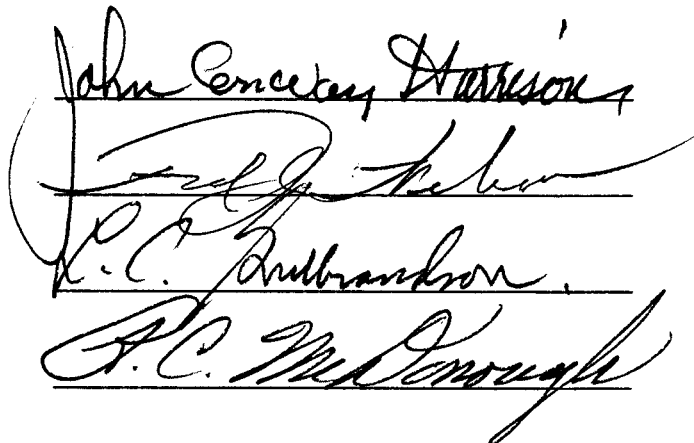 John Conway Harrison
Fred J. Weber
L. C. Gulbrandson.
R. C. McDonough